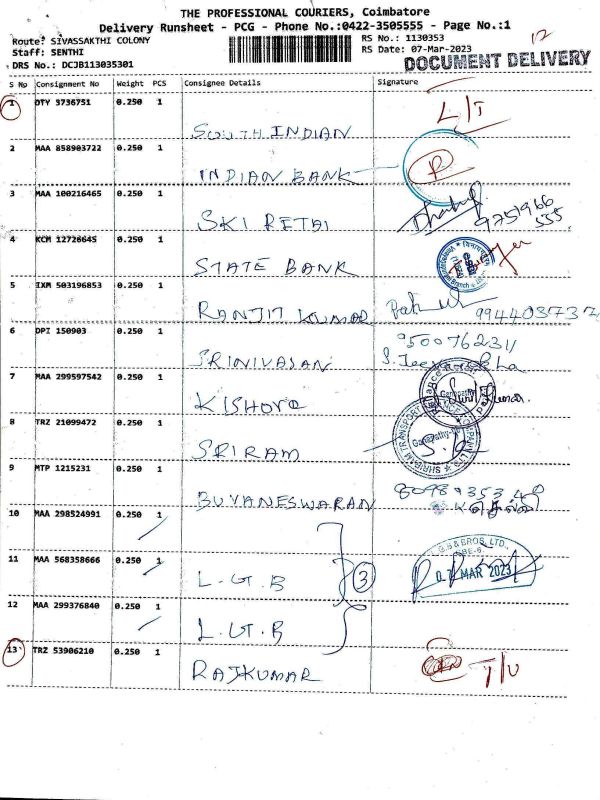 THE PROFESSIONAL COURIERS, Coimbatore
Delivery Runsheet - PCG - Phone No.:0422-3505555 - Page No.:1
Route: SIVASSAKTHI COLONY RS No.: 1130353 12
Staff: SENTHI RS Date: 07-Mar-2023
DRS No.: DCJB113035301 DOCUMENT DELIVERY
S No Consignment No Weight PCS Consignee Details Signature
1 OTY 3736751 0.250 1 L/T
SOUTH INDIAN
2 MAA 858903722 0.250 1
INDIAN BANK
3 MAA 100216465 0.250 1
SKI RETAI
4 KCM 12726645 0.250 1
STATE BANK
5 IXM 503196853 0.250 1
RANJIT KUMAR
6 DPI 150903 0.250 1
SRINIVASAN
7 MAA 299597542 0.250 1
KISHORE
8 TRZ 21099472 0.250 1
SRIRAM
9 MTP 1215231 0.250 1
BUVANESWARAN
10 MAA 298524991 0.250
11 MAA 568358666 0.250 1
L.G.B 3 07 MAR 2023
12 MAA 299376840 0.250
L.G.B
13 TRZ 53906210 0.250 1 T/U
RAJKUMAR